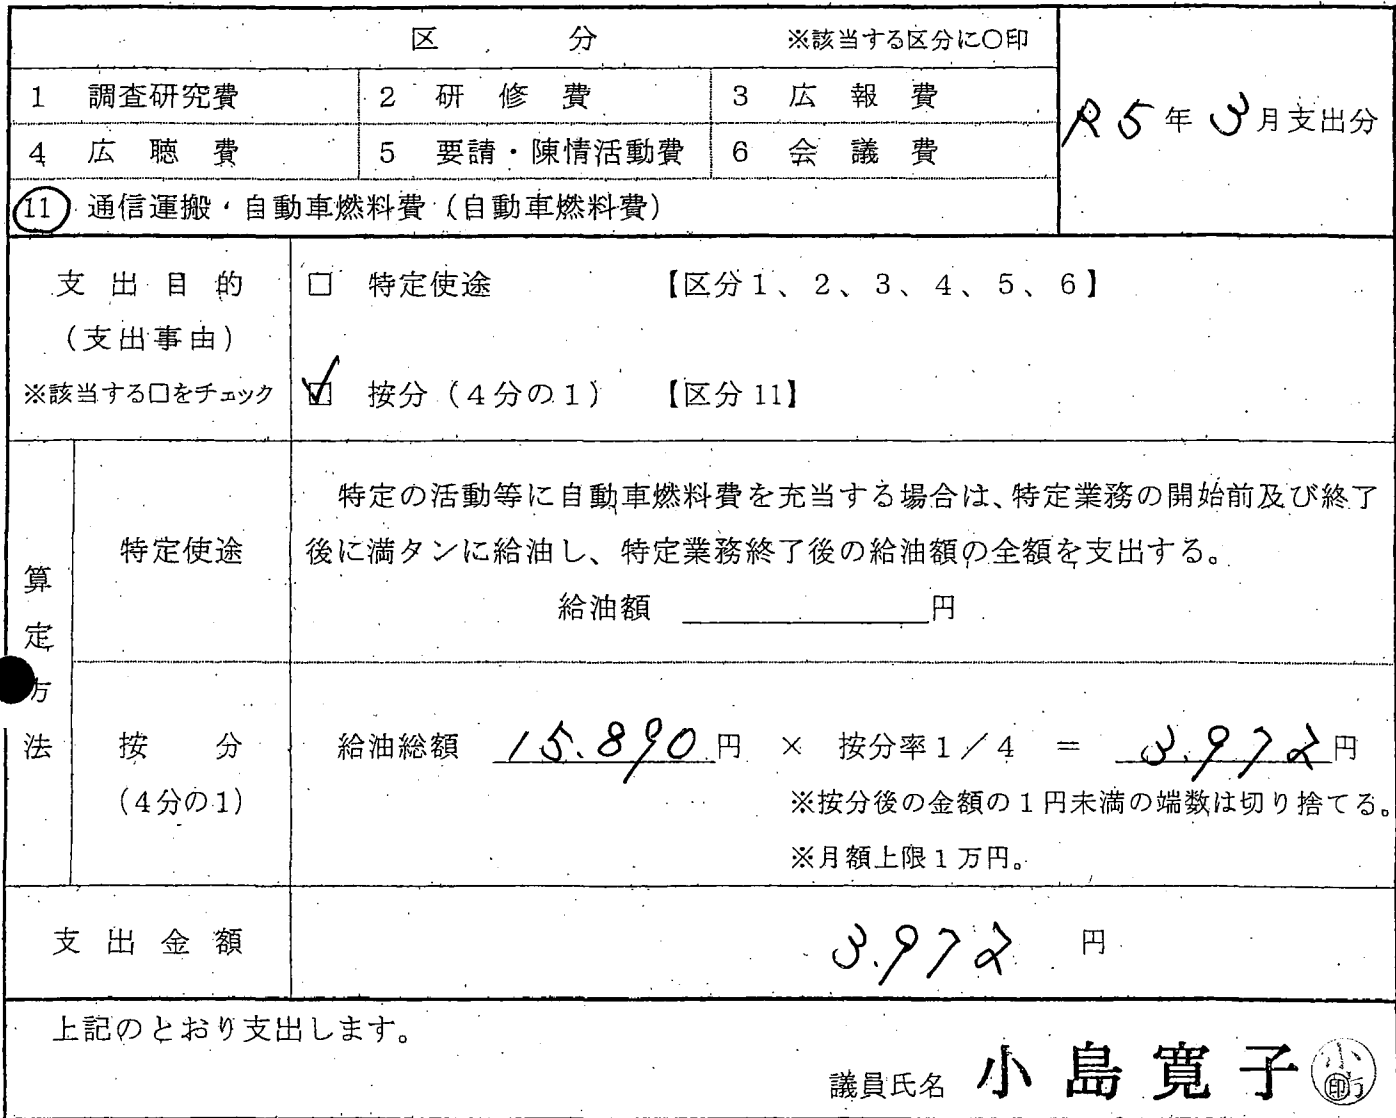 区 分 ※該当する区分に〇印
1 調査研究費 2 研修費 3 広報費
R5年3月支出分
4 広聴費 5 要請・陳情活動費 6 会議費
11 通信運搬・自動車燃料費(自動車燃料費)
支出目的
(支出事由)
※該当する□をチェック
□ 特定使途 【区分1、2、3、4、5、6】
☑ 按分(4分の1) 【区分11】
算定方法
特定使途
特定の活動等に自動車燃料費を充当する場合は、特定業務の開始前及び終了
後に満タンに給油し、特定業務終了後の給油額の全額を支出する。
給油額 円
按分
(4分の1)
給油総額 15.890円 × 按分率1/4 = 3.972円
※按分後の金額の1円未満の端数は切り捨てる。
※月額上限1万円。
支出金額 3.972 円
上記のとおり支出します。
議員氏名 小島寛子 印